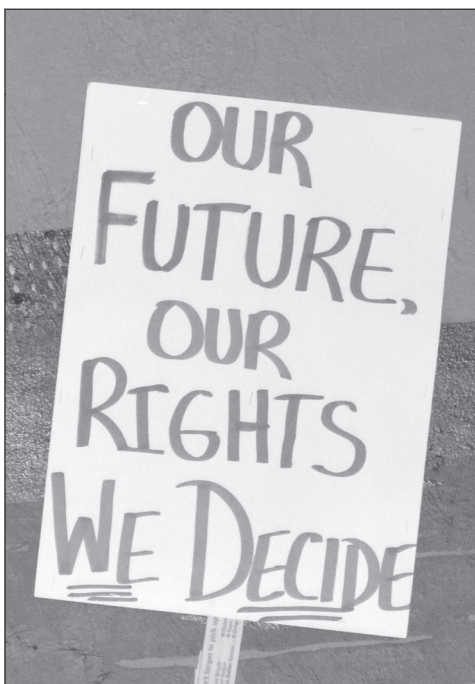 OUR
FUTURE,
OUR
RIGHTS
WE DECIDE